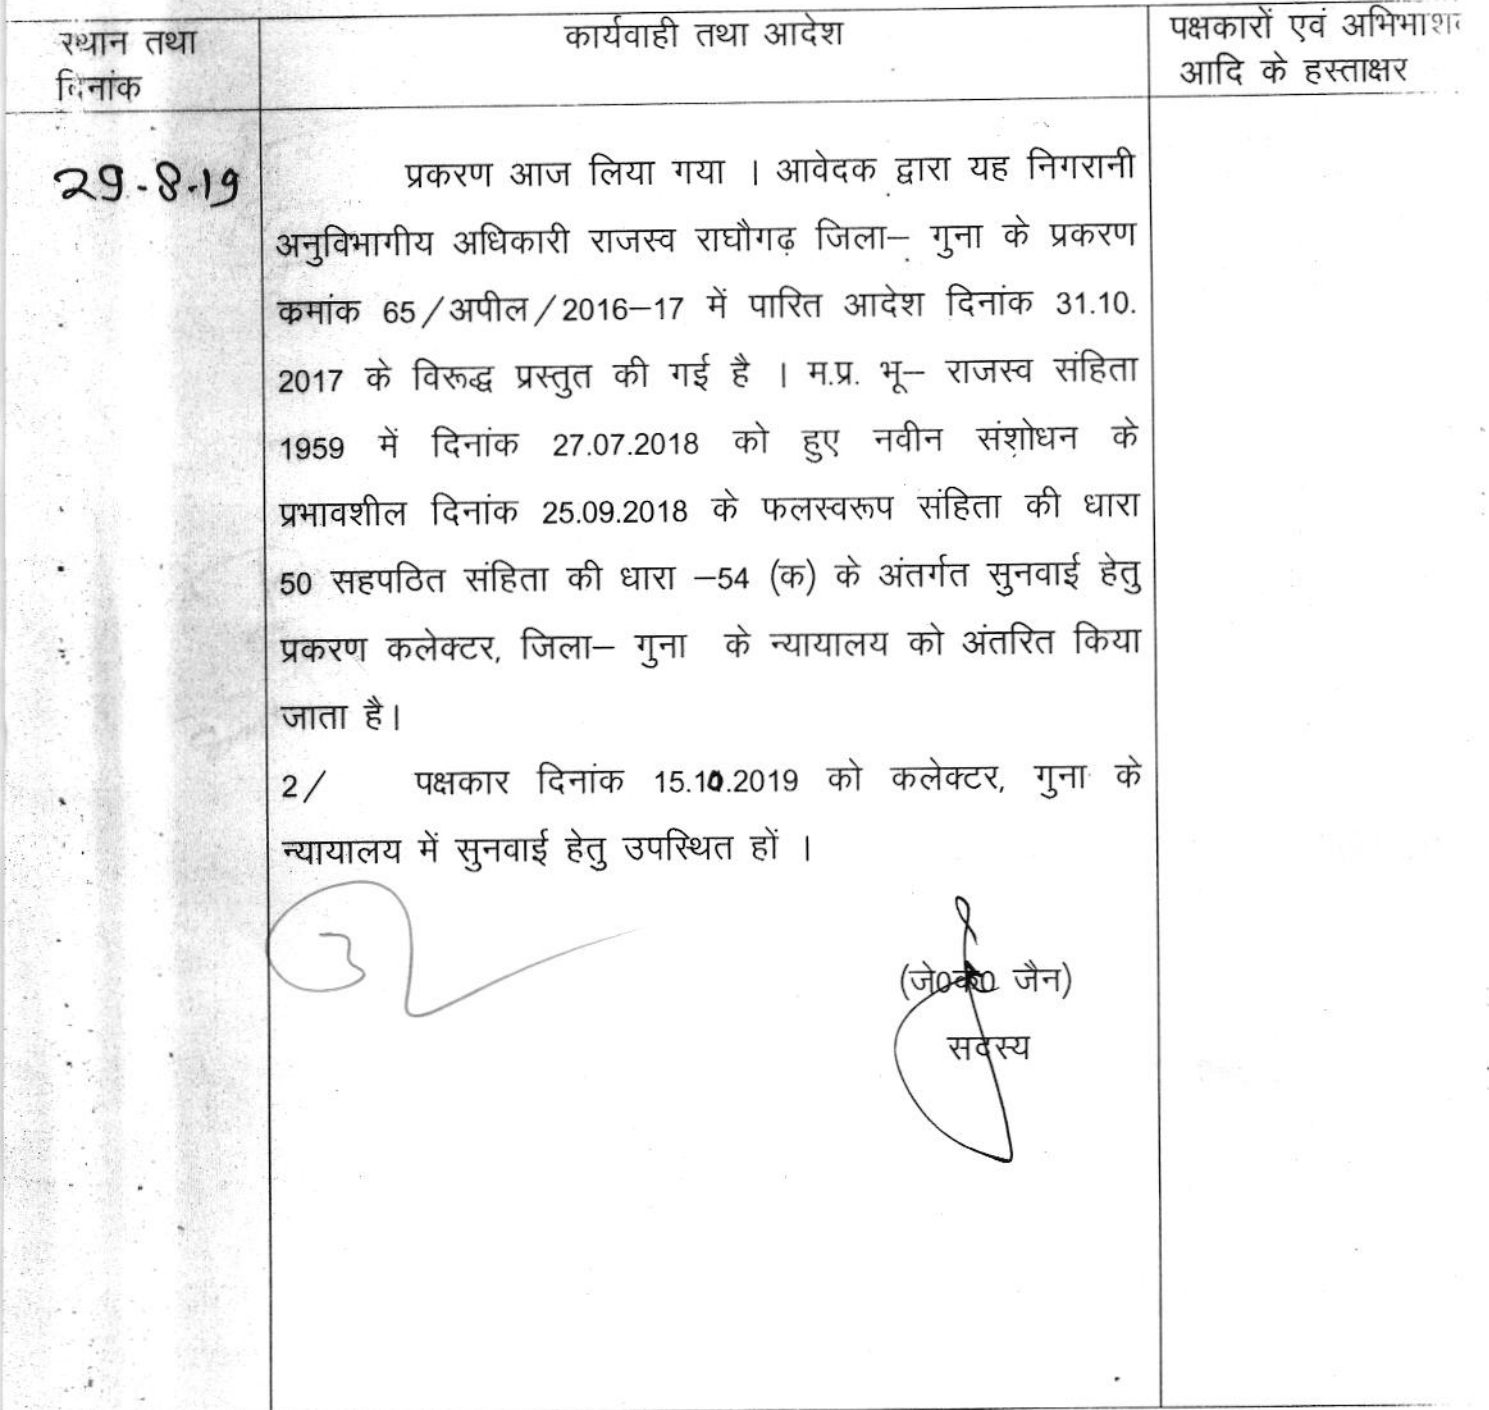 स्थान तथा
दिनांक
कार्यवाही तथा आदेश
पक्षकारों एवं
आदि के हस्ताक्षर
29-8-19
प्रकरण आज लिया गया । आवेदक द्वारा यह निगरानी
अनुविभागीय अधिकारी राजस्व राघौगढ़ जिला– गुना के प्रकरण
कमांक 65/अपील/2016–17 में पारित आदेश दिनांक 31.10.
2017 के विरूद्ध प्रस्तुत की गई है । म.प्र. भू– राजस्व संहिता
1959 में दिनांक 27.07.2018 को हुए नवीन संशोधन के
प्रभावशील दिनांक 25.09.2018 के फलस्वरूप संहिता की धारा
50 सहपठित संहिता की धारा –54 (क) के अंतर्गत सुनवाई हेतु
प्रकरण कलेक्टर, जिला– गुना के न्यायालय को अंतरित किया
जाता है।
2/ पक्षकार दिनांक 15.10.2019 को कलेक्टर, गुना के
न्यायालय में सुनवाई हेतु उपस्थित हों ।
(जे0के0 जैन)
सदस्य